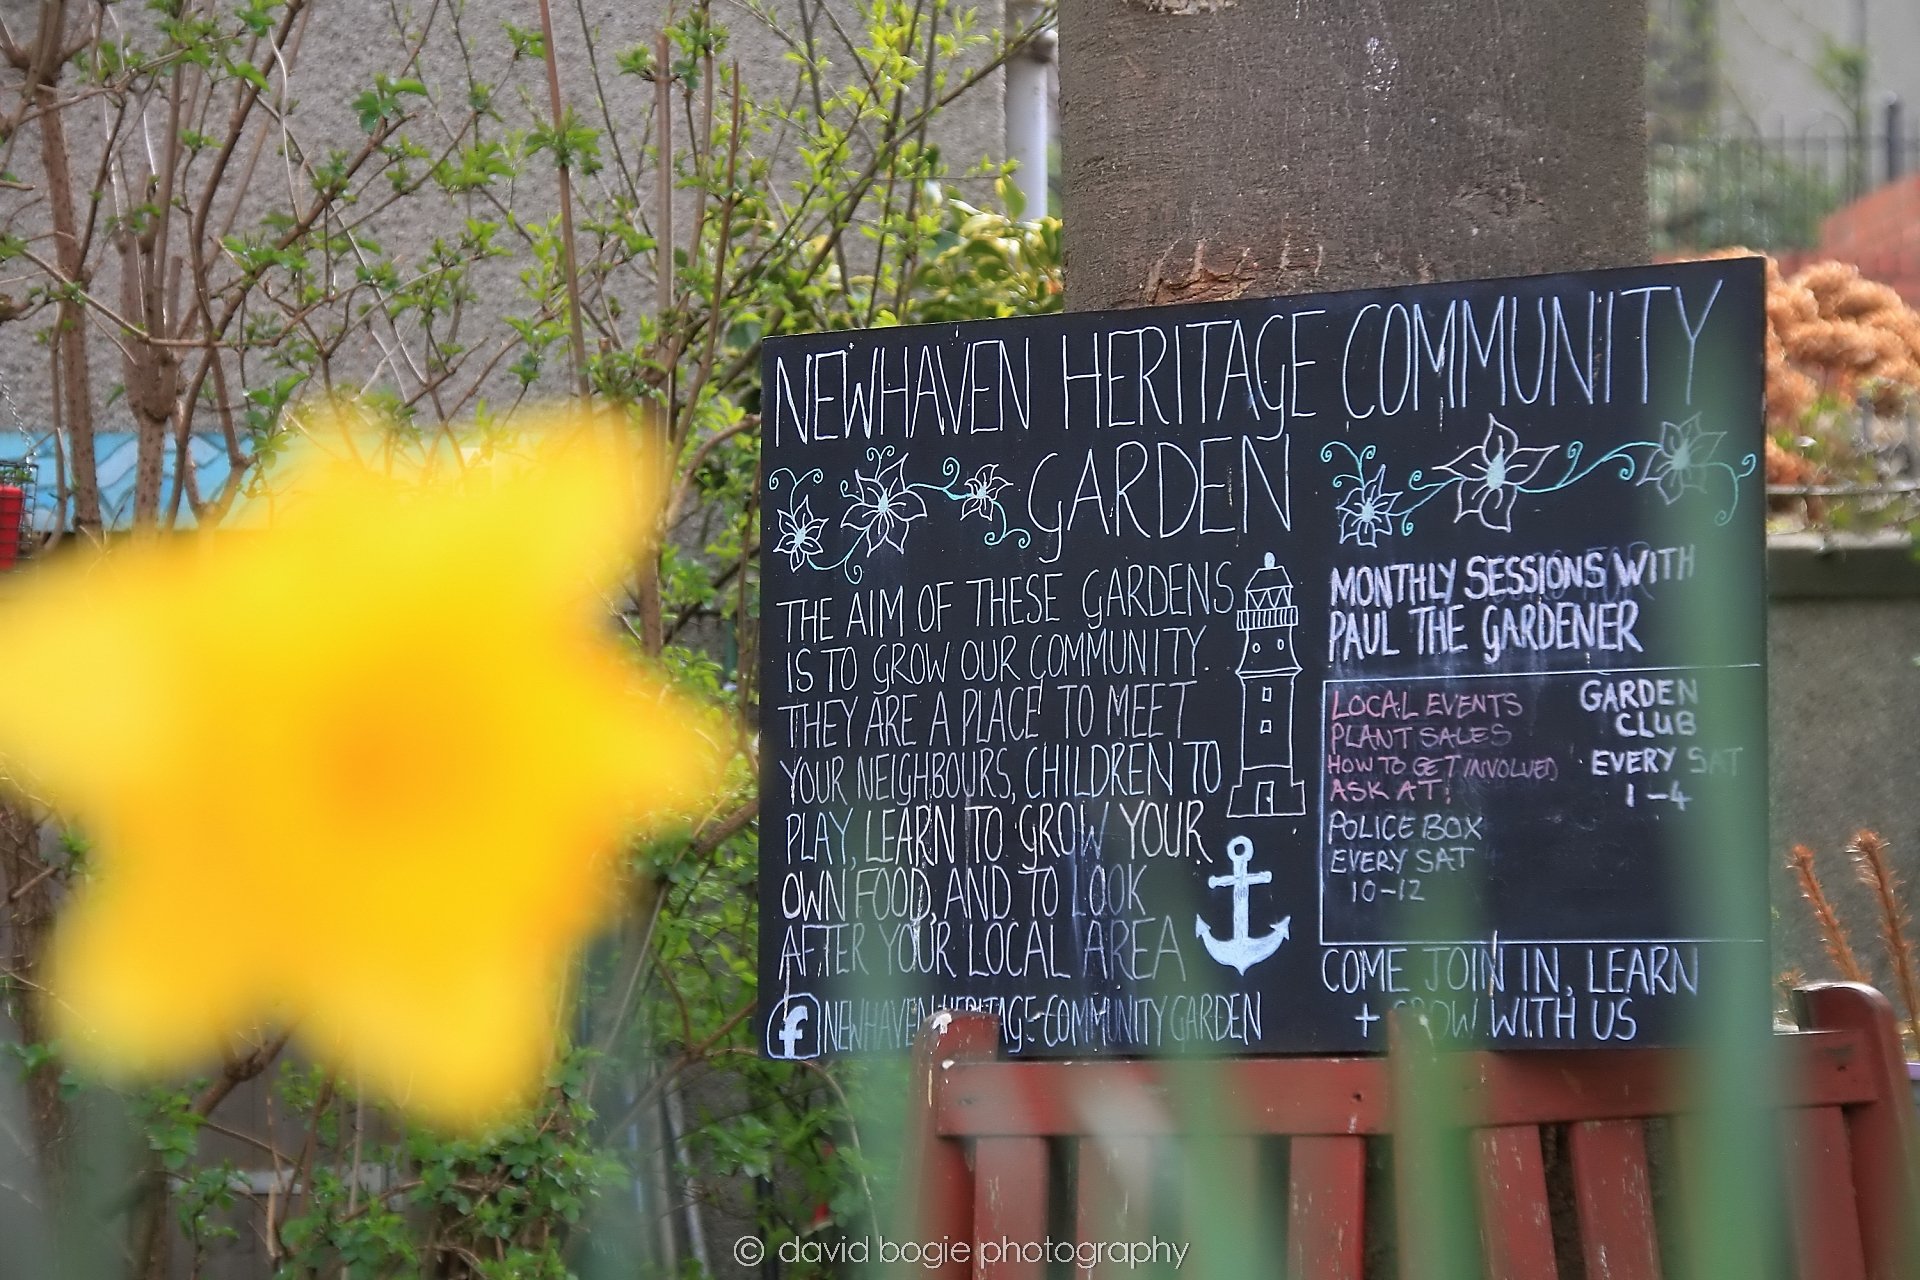 NEWHAVEN HERITAGE COMMUNITY
GARDEN
THE AIM OF THESE GARDENS
IS TO GROW OUR COMMUNITY.
THEY ARE A PLACE TO MEET
YOUR NEIGHBOURS, CHILDREN TO
PLAY, LEARN TO GROW YOUR
OWN FOOD, AND TO LOOK
AFTER YOUR LOCAL AREA
f NEWHAVEN-HERITAGE-COMMUNITY GARDEN
MONTHLY SESSIONS WITH
PAUL THE GARDENER
LOCAL EVENTS
PLANT SALES
HOW TO GET INVOLVED
ASK AT:
POLICE BOX
EVERY SAT
10-12
GARDEN
CLUB
EVERY SAT
1-4
COME JOIN IN, LEARN
+ GROW WITH US
© david bogie photography